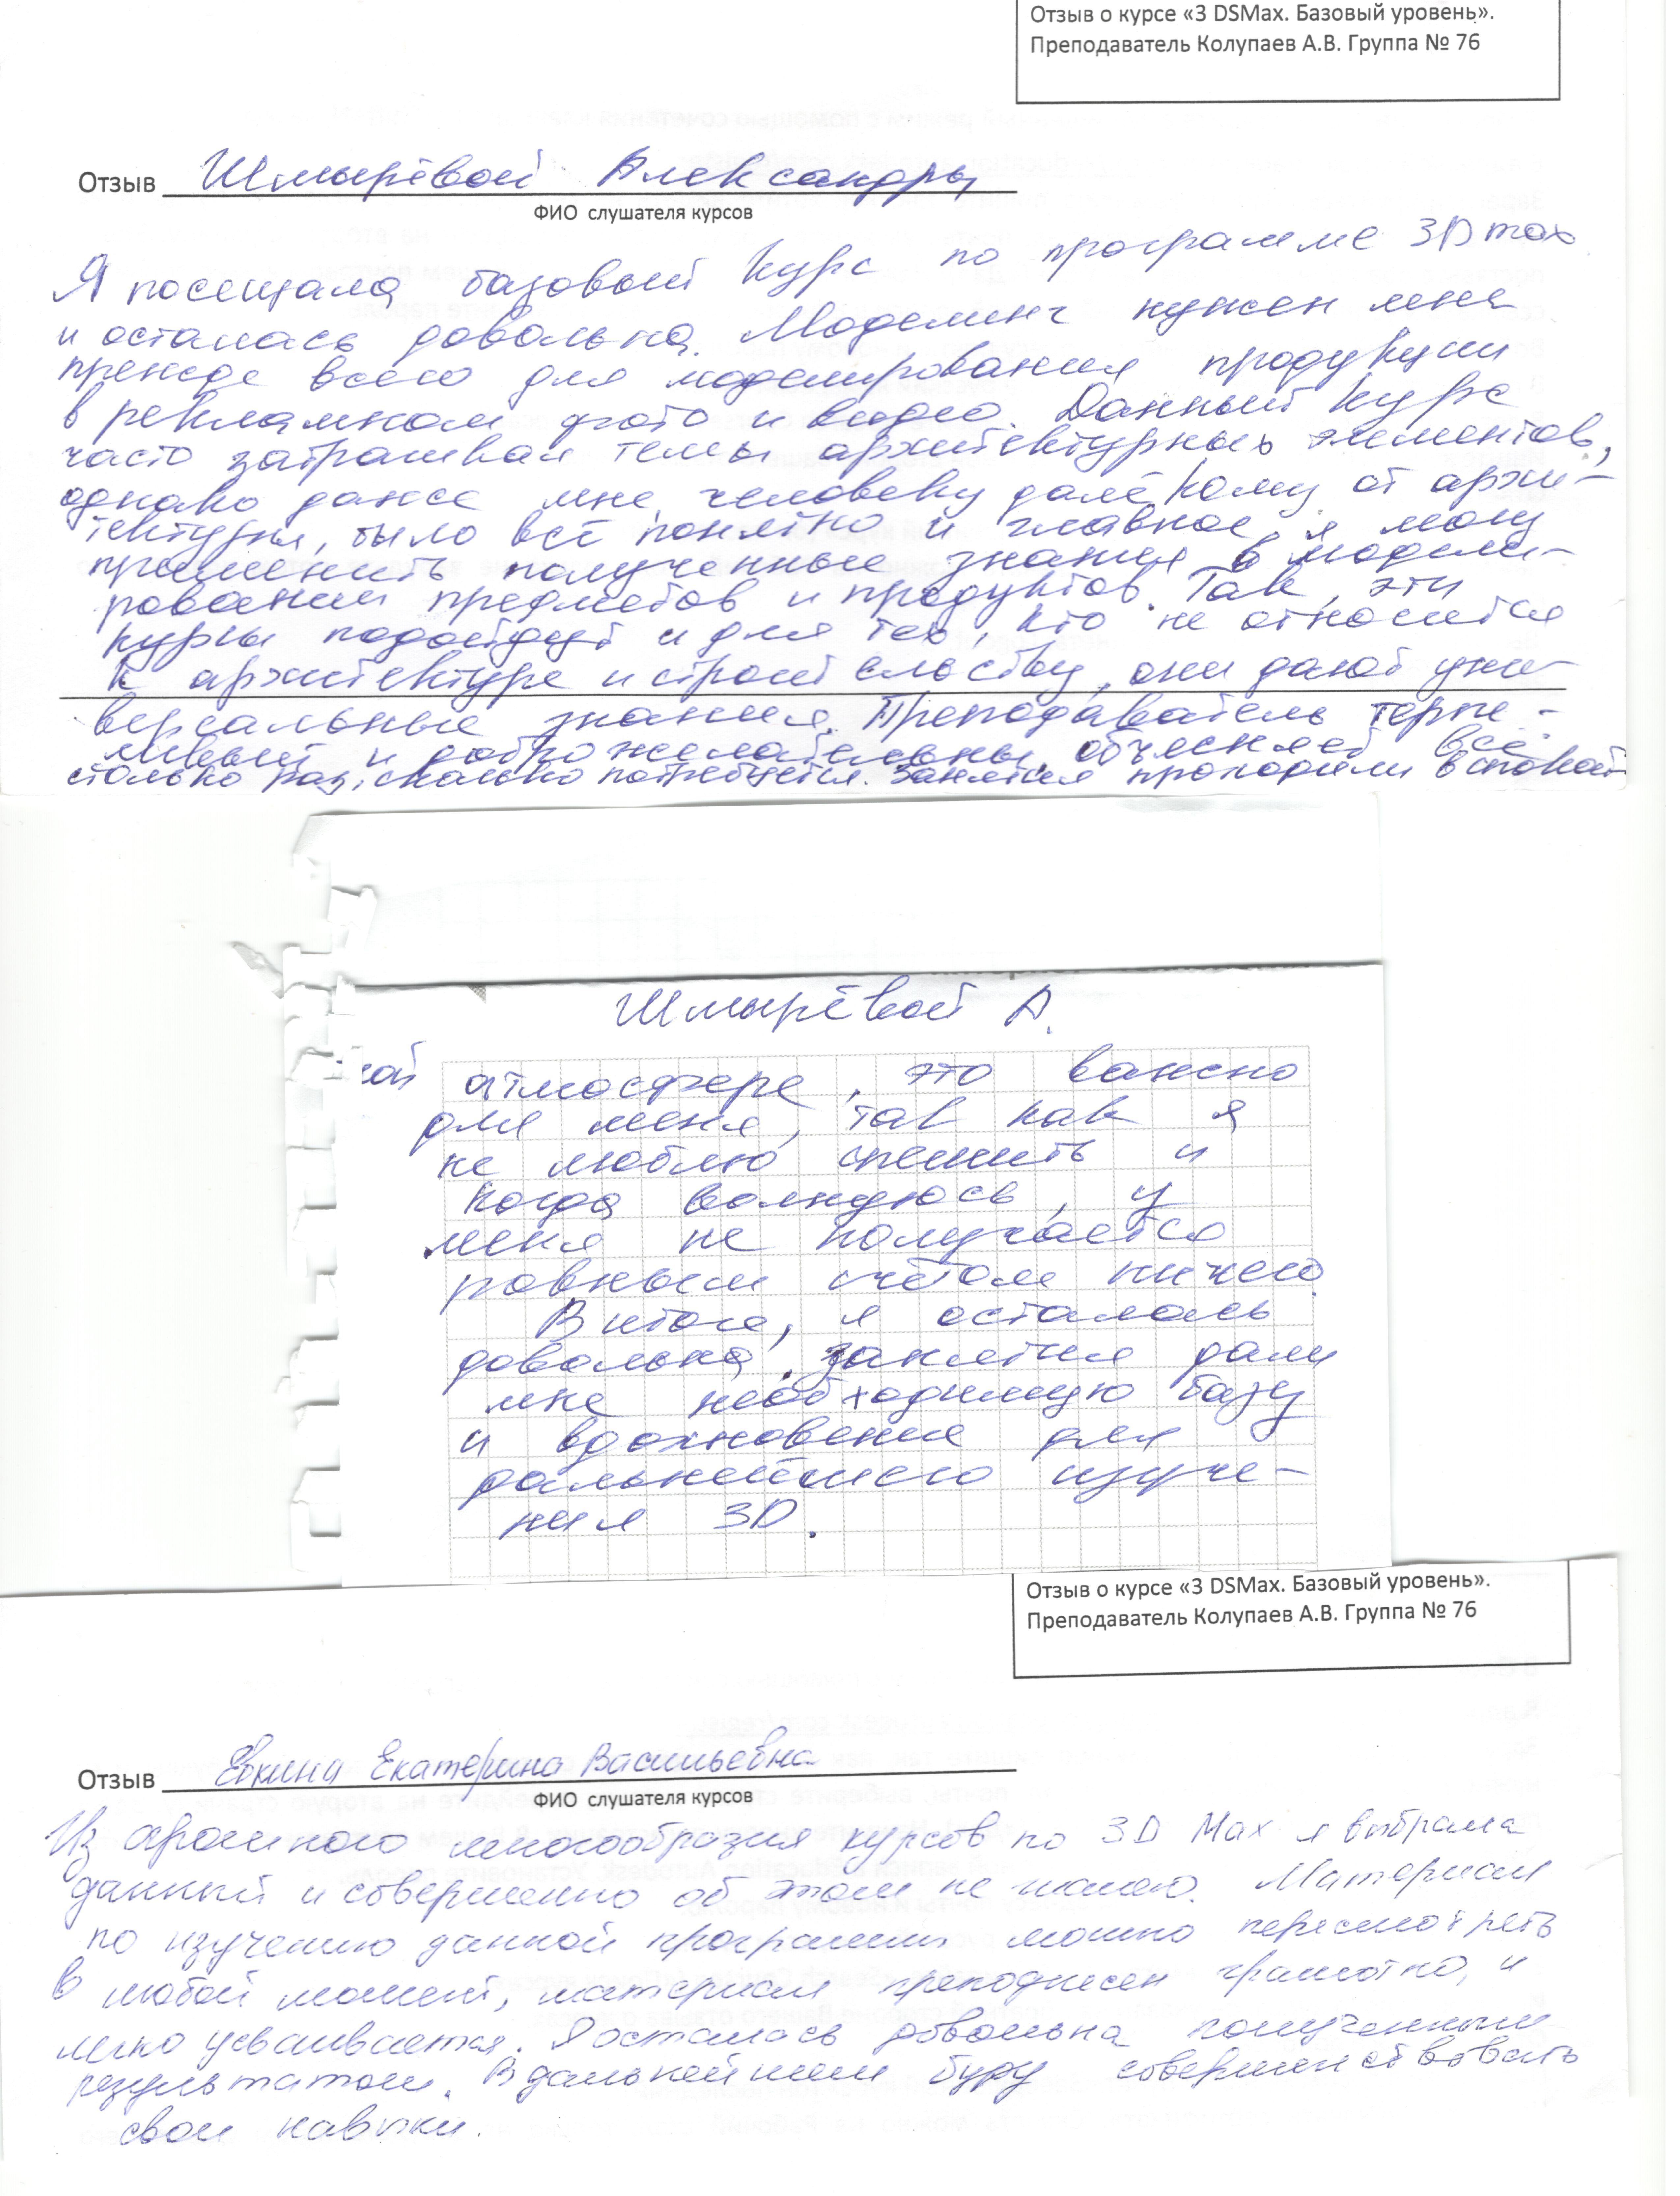 Отзыв о курсе «3 DSMax. Базовый уровень».
Преподаватель Колупаев А.В. Группа № 76
Отзыв Шмырёвой Александры
ФИО слушателя курсов
Я посещала базовый курс по программе 3D max
и осталась довольна. Моделинг нужен мне
прежде всего для моделирования продукции
в рекламном фото и видео. Данный курс
часто затрагивал темы архитектурных элементов,
однако даже мне, человеку далёкому от архи-
тектуры, было всё понятно и главное, я могу
применить полученные знания в модели-
ровании предметов и продуктов. Так, эти
курсы подойдут и для тех, кто не относится
к архитектуре и строительству, они дают уни-
версальные знания. Преподаватель терпе-
ливый и доброжелательный, объясняет всё
столько раз, сколько потребуется. Занятия проходили в спокой
Шмырёвой А.
ной атмосфере, это важно
для меня, так как я
не люблю спешить и
когда волнуюсь, у
меня не получается
ровным счётом ничего.
В итоге, я осталась
довольна, занятия дали
мне необходимую базу
и вдохновение для
дальнейшего изуче-
ния 3D.
Отзыв о курсе «3 DSMax. Базовый уровень».
Преподаватель Колупаев А.В. Группа № 76
Отзыв Евкина Екатерина Васильевна
ФИО слушателя курсов
Из огромного многообразия курсов по 3D Max я выбрала
данный и совершенно об этом не жалею. Материал
по изучению данной программы можно пересмотреть
в любой момент, материал преподнесен грамотно, и
легко усваивается. Я осталась довольна полученным
результатом. В дальнейшем буду совершенствовать
свои навыки.